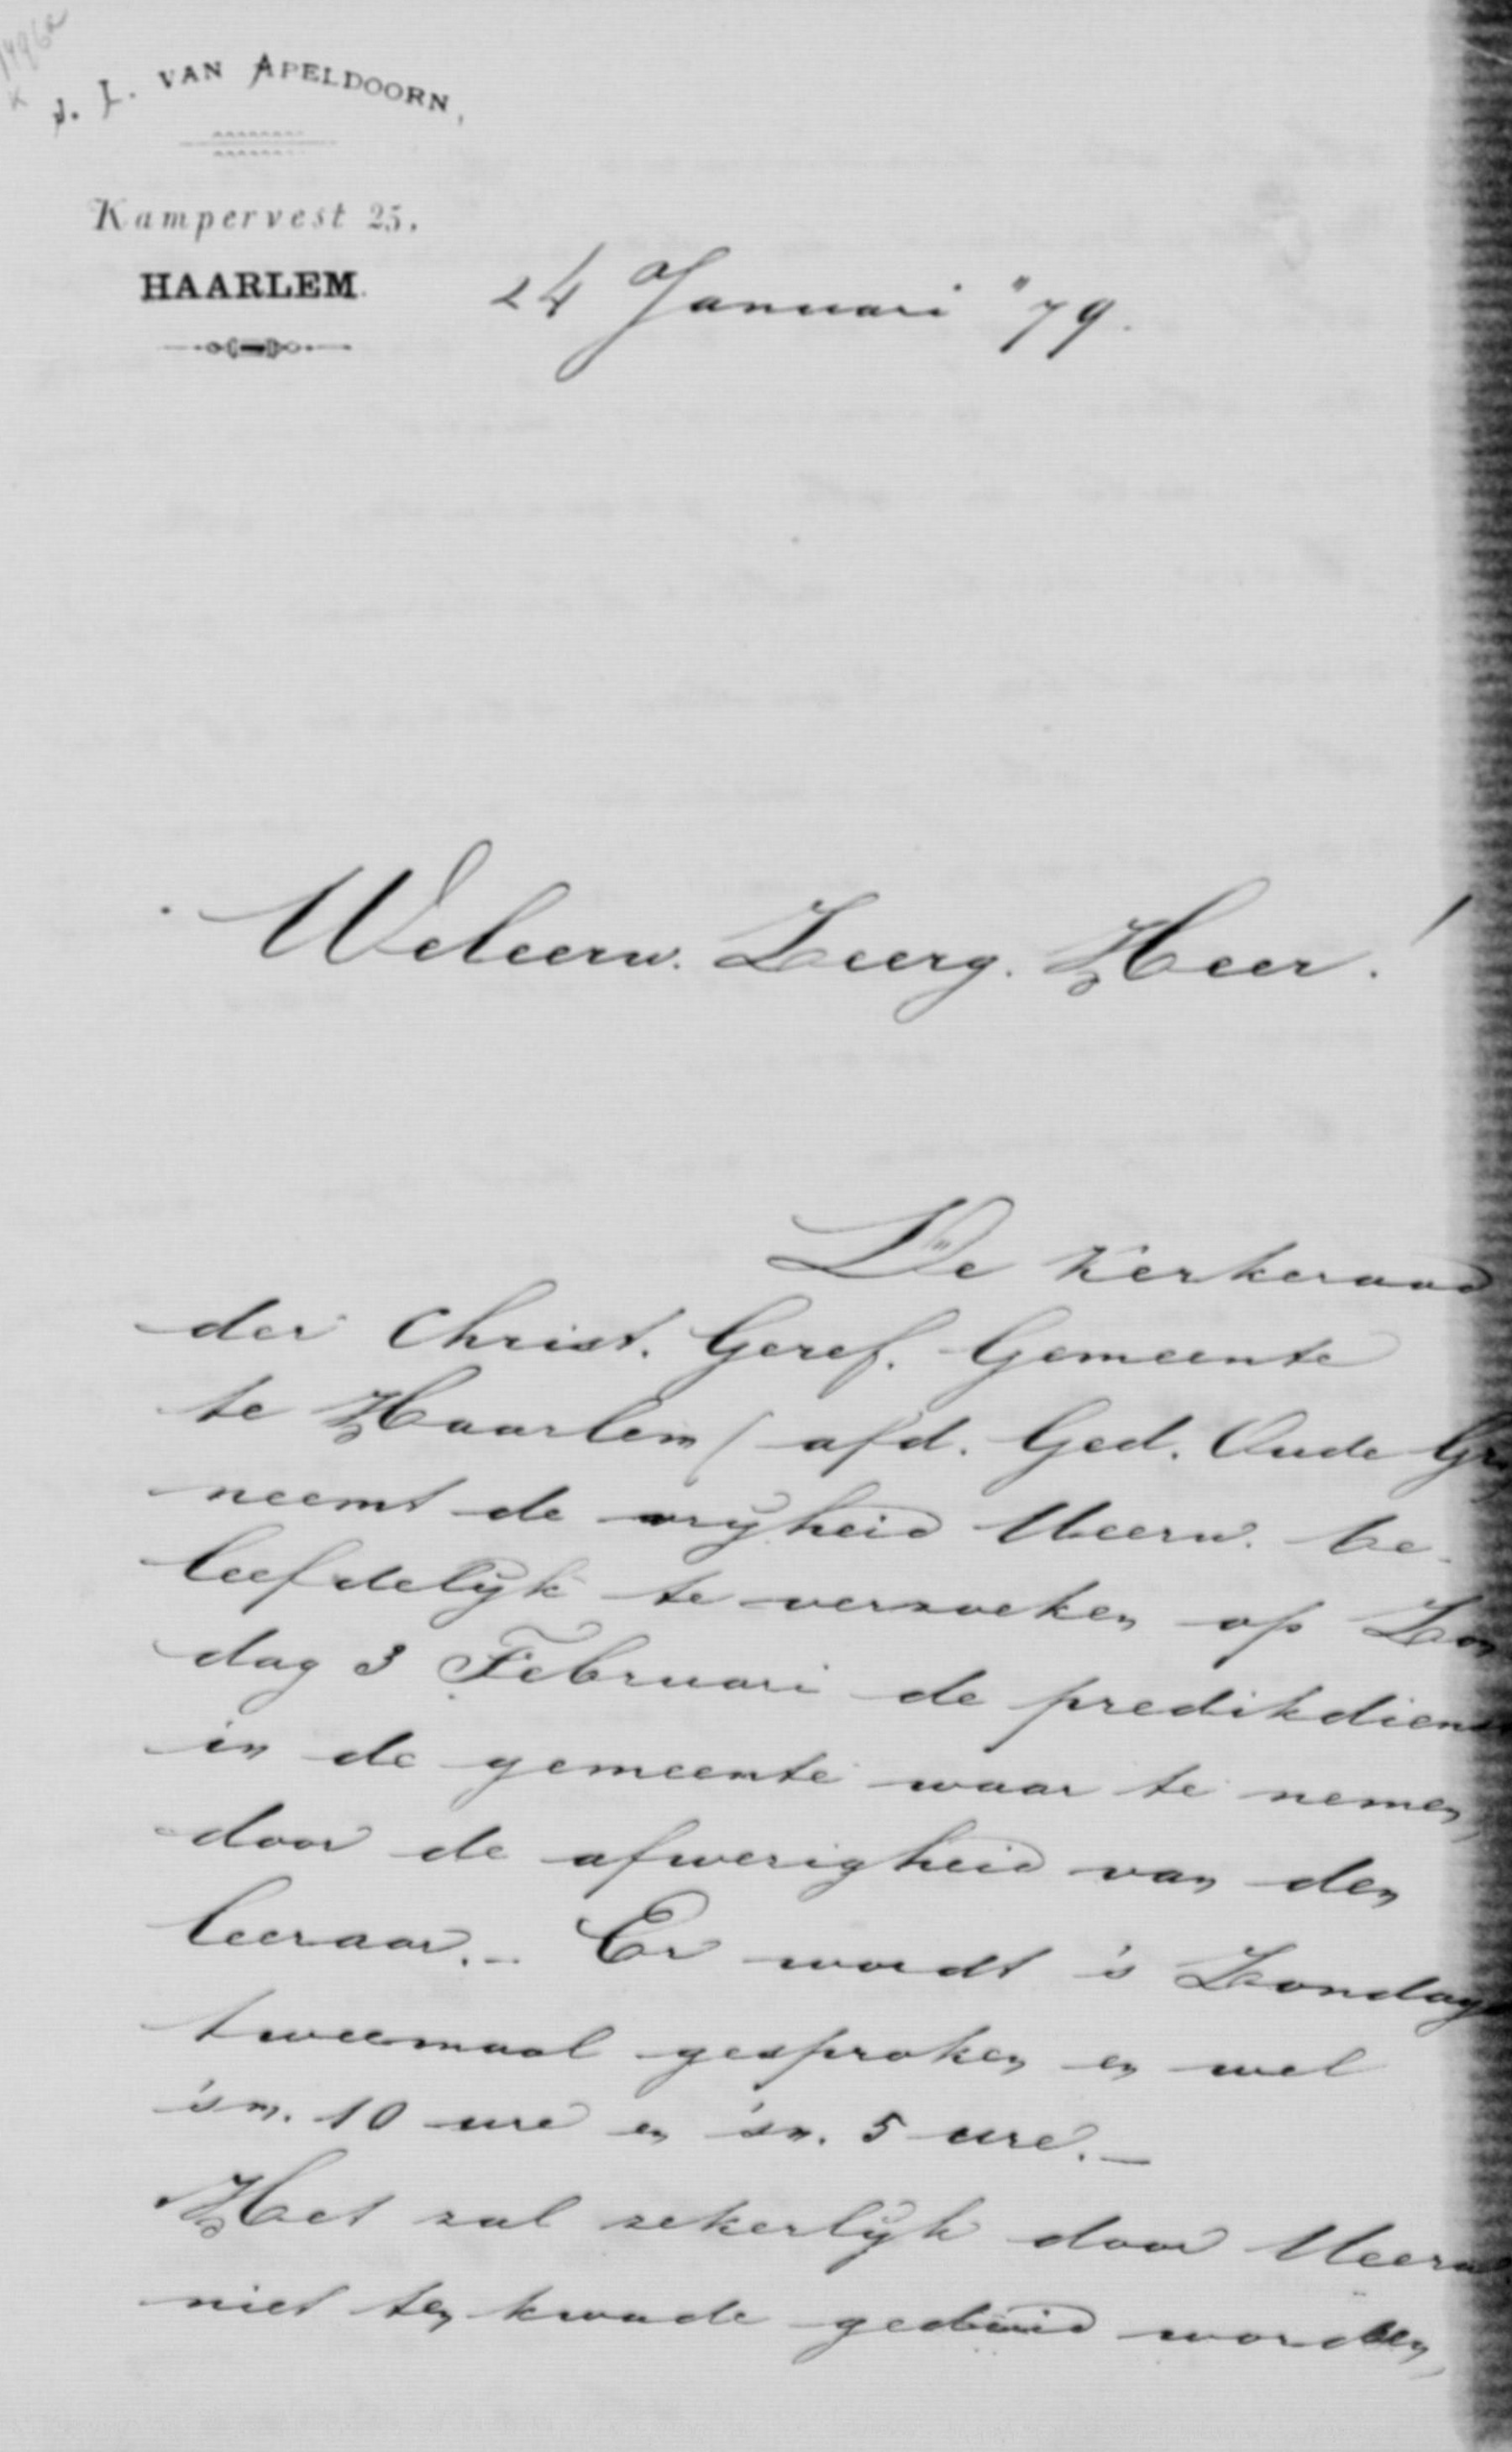 1496a
J. L. VAN APELDOORN,
Kampervest 25.
HAARLEM.
24 Januari "79.
Weleerw. Zeerg. Heer!
De Kerkeraad
der Christ. Geref. Gemeente
te Haarlem (afd. Ged. Oude Gr
neemt de vrijheid UEerw. be-
leefdelijk te verzoeken op Zon
dag 3 Februari de predikdienst
in de gemeente waar te nemen,
door de afwezigheid van den
leeraar. - Er wordt 's Zondags
tweemaal gesproken en wel
'sm. 10 ure en 'sn. 5 ure. -
Het zal zekerlijk door UEerw.
niet ten kwade geduid worden,